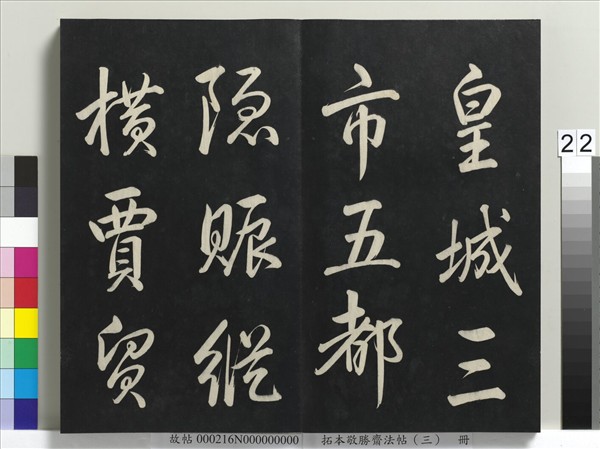 皇城三
市五都
隐賑縱
橫賈貿
22
故帖 000216N000000000 拓本敬勝齋法帖（三） 冊